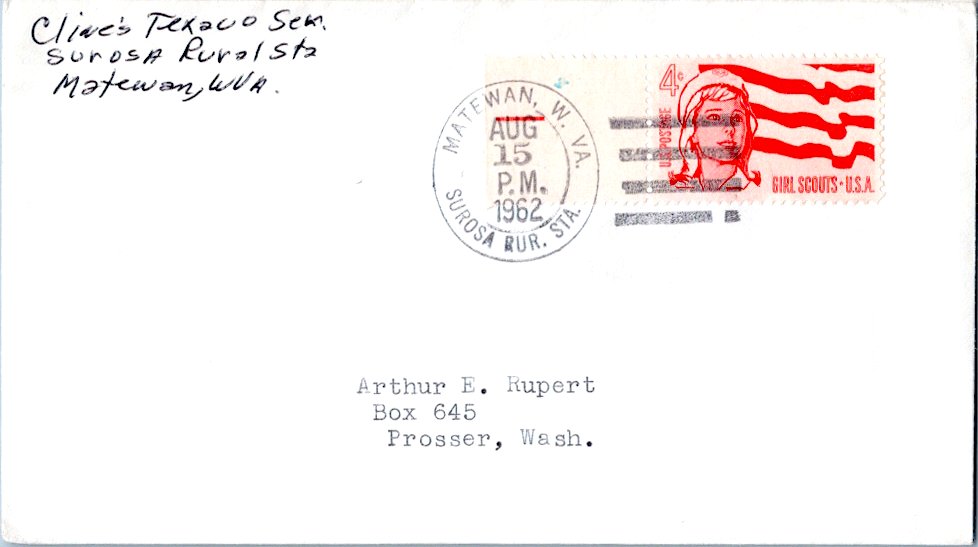 Cline's Texaco Ser.
Surosa Rural Sta
Matewan, W VA.
MATEWAN, W. VA.
AUG
15
P.M.
1962
SUROSA RUR. STA.
4¢
U.S. POSTAGE
GIRL SCOUTS · U.S.A.
Arthur E. Rupert
Box 645
Prosser, Wash.